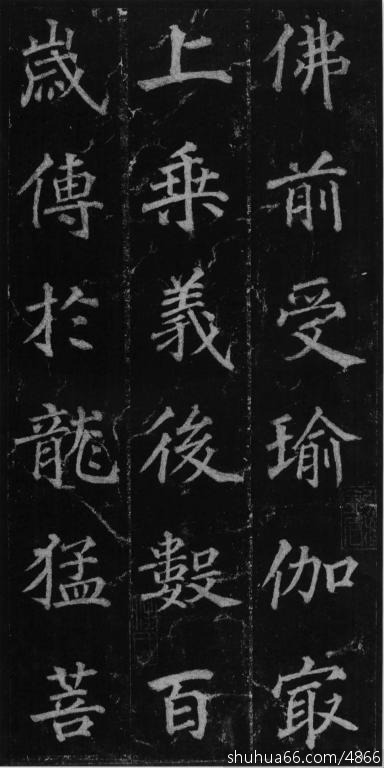 佛前受瑜伽㝡
上乗義後數百
歳傳於龍猛菩
shuhua66.com/4866